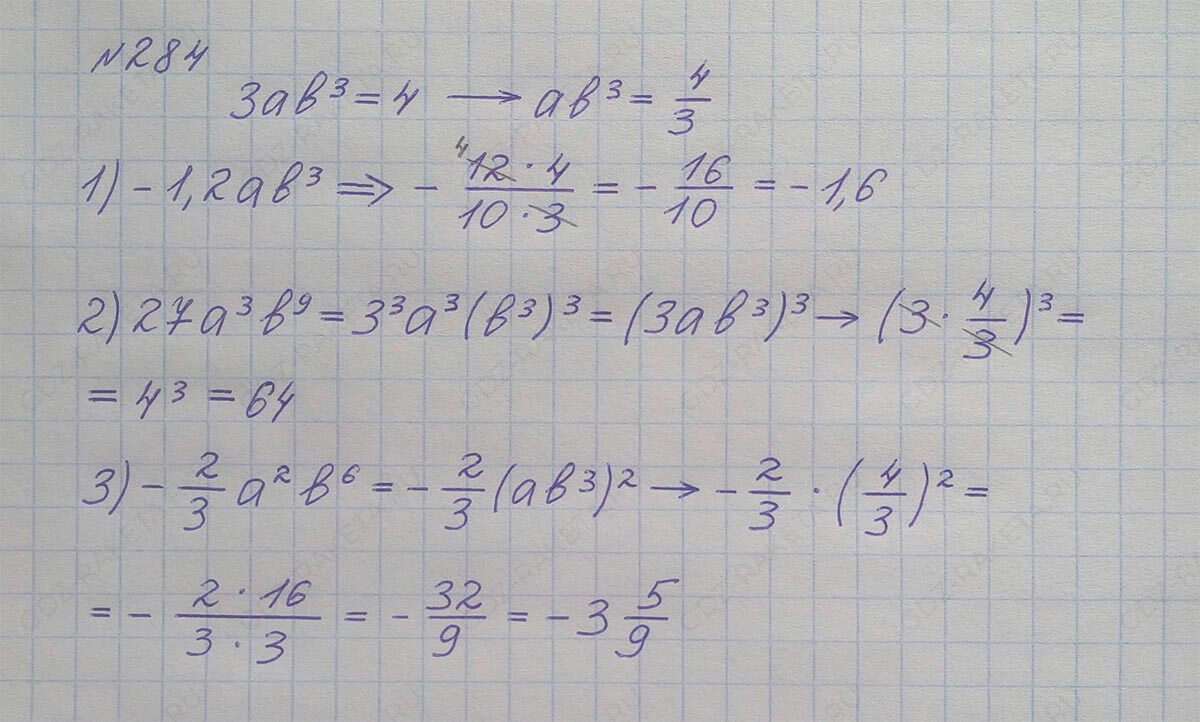 №284
3ab³ = 4 → ab³ = 4/3
1) -1,2ab³ ⇒ - (12 · 4)/(10 · 3) = - 16/10 = -1,6
4
2) 27a³b⁹ = 3³a³(b³)³ = (3ab³)³ → (3 · 4/3)³ =
= 4³ = 64
3) - 2/3 a²b⁶ = - 2/3 (ab³)² → - 2/3 · (4/3)² =
= - (2 · 16)/(3 · 3) = - 32/9 = -3 5/9